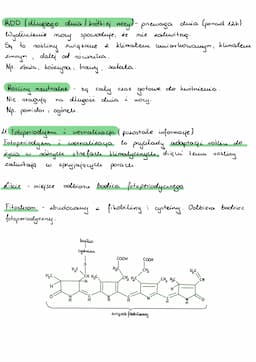 RDD (długiego dnia / krótkiej nocy) - przewaga dnia (ponad 12h)
Wydłużenie nocy spowoduje, że nie zakwitną.
Są to rośliny związane z klimatem umiarkowanym, klimatem
zimnym, dalej od równika.
Np. zboża, koniczyna, trawy, sałata.
Rośliny neutralne - są cały czas gotowe do kwitnienia.
Nie reagują na długość dnia i nocy.
Np. pomidor, ogórek.
Fotoperiodyzm i wernalizacja (pozostałe informacje)
Fotoperiodyzm i wernalizacja to przykłady adaptacji roślin do
życia w różnych strefach klimatycznych, dzięki temu rośliny
zakwitają w sprzyjających porach.
Liście - miejsce odbioru bodźca fotoperiodycznego
Fitochrom - zbudowany z fikobiliny i cysteiny. Odbiera bodziec
fotoperiodyczny.
białko
cysteina
COOH
COOH
CH₃
H
N
O